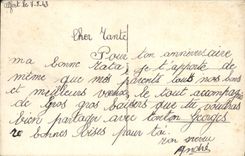 Alfort le 8.8.43
Cher Tante
Pour ton anniversaire
ma bonne tata, je t'apporte de
même que mes parents touts nos bons
et meilleurs voeux, le tout accompagné
de gros gros baisers que tu voudras
bien partager avec tonton Georges
20 bonnes bises pour toi.
ton neveu
André